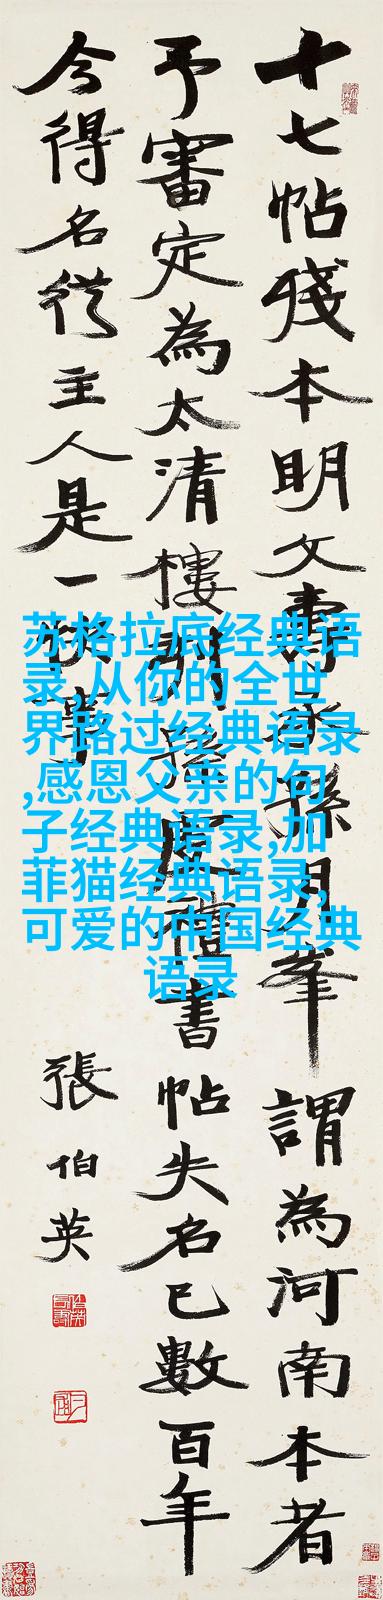 十七帖殘本明文壽承孫月峯謂為河南本者
予審定為太清樓孫虔禮書帖失名已數百年
今得名從主人是一快事
張伯英
苏格拉底经典语
录,从你的全世
界路过经典语录
,感恩父亲的句
子经典语录,加
菲猫经典语录,
可爱的中国经典
语录